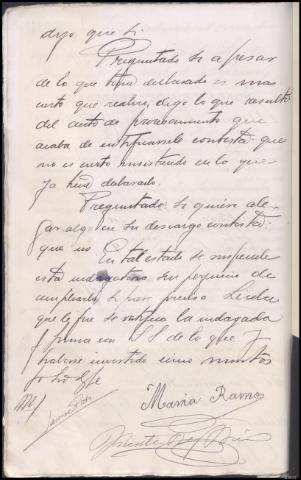 dijo que si.
Preguntado si a pesar
de lo que tiene declarado es mas
cierto que realizó, digo lo que resulta
del auto de procesamiento que
acaba de notificarsele contesta: que
no es cierto insistiendo en lo que
ya tiene declarado.
Preguntado si quiere ale-
gar algo en su descargo contesta:
que no. En tal estado se suspende
esta indagatoria sin perjuicio de
ampliarla si fuere preciso. Leida
que le fue se ratifica la indagada
y firma con S.S. de lo que y
haberse invertido cinco minutos
yo doy fe
Maria Ramos